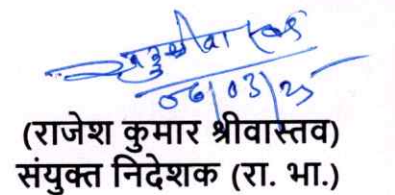 06/03/25
(राजेश कुमार श्रीवास्तव)
संयुक्त निदेशक (रा. भा.)